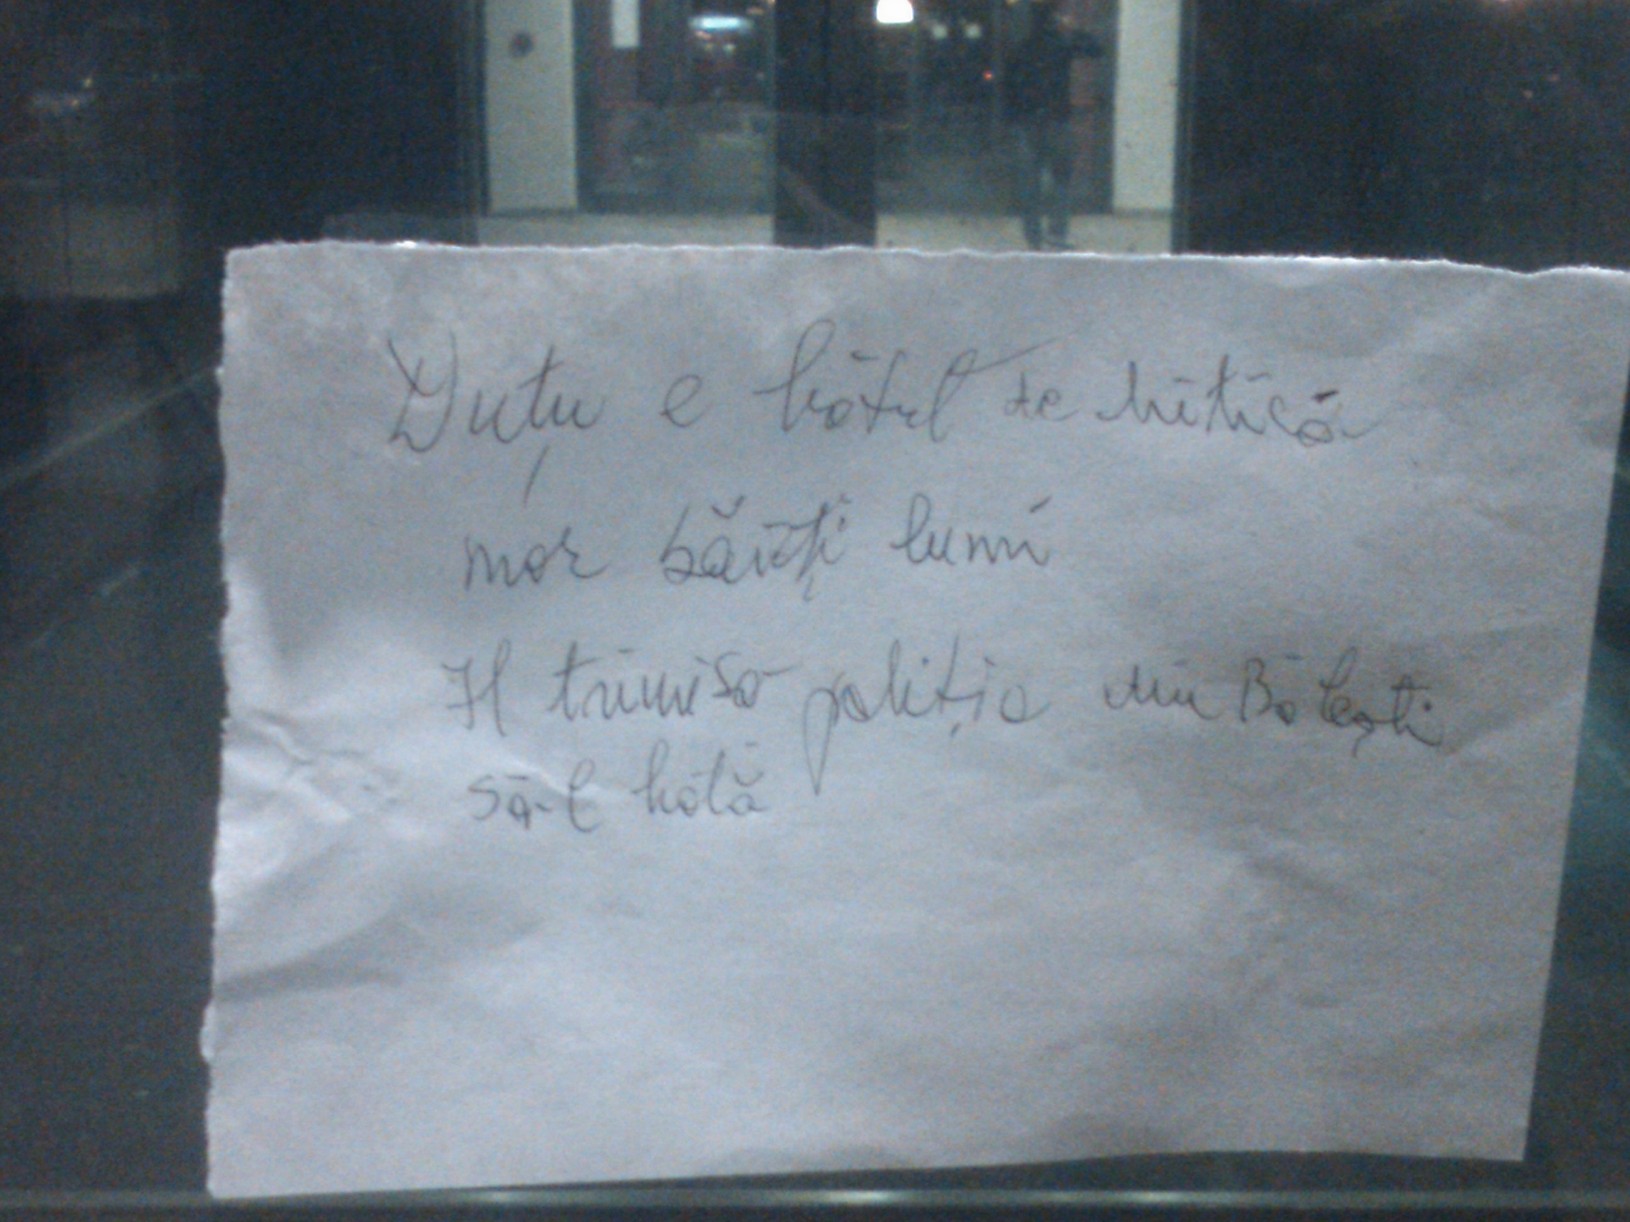 Duțu e hotul de Mitică
mor sănți lumi
Il trimisă poliția din Bălești
să-l hotă